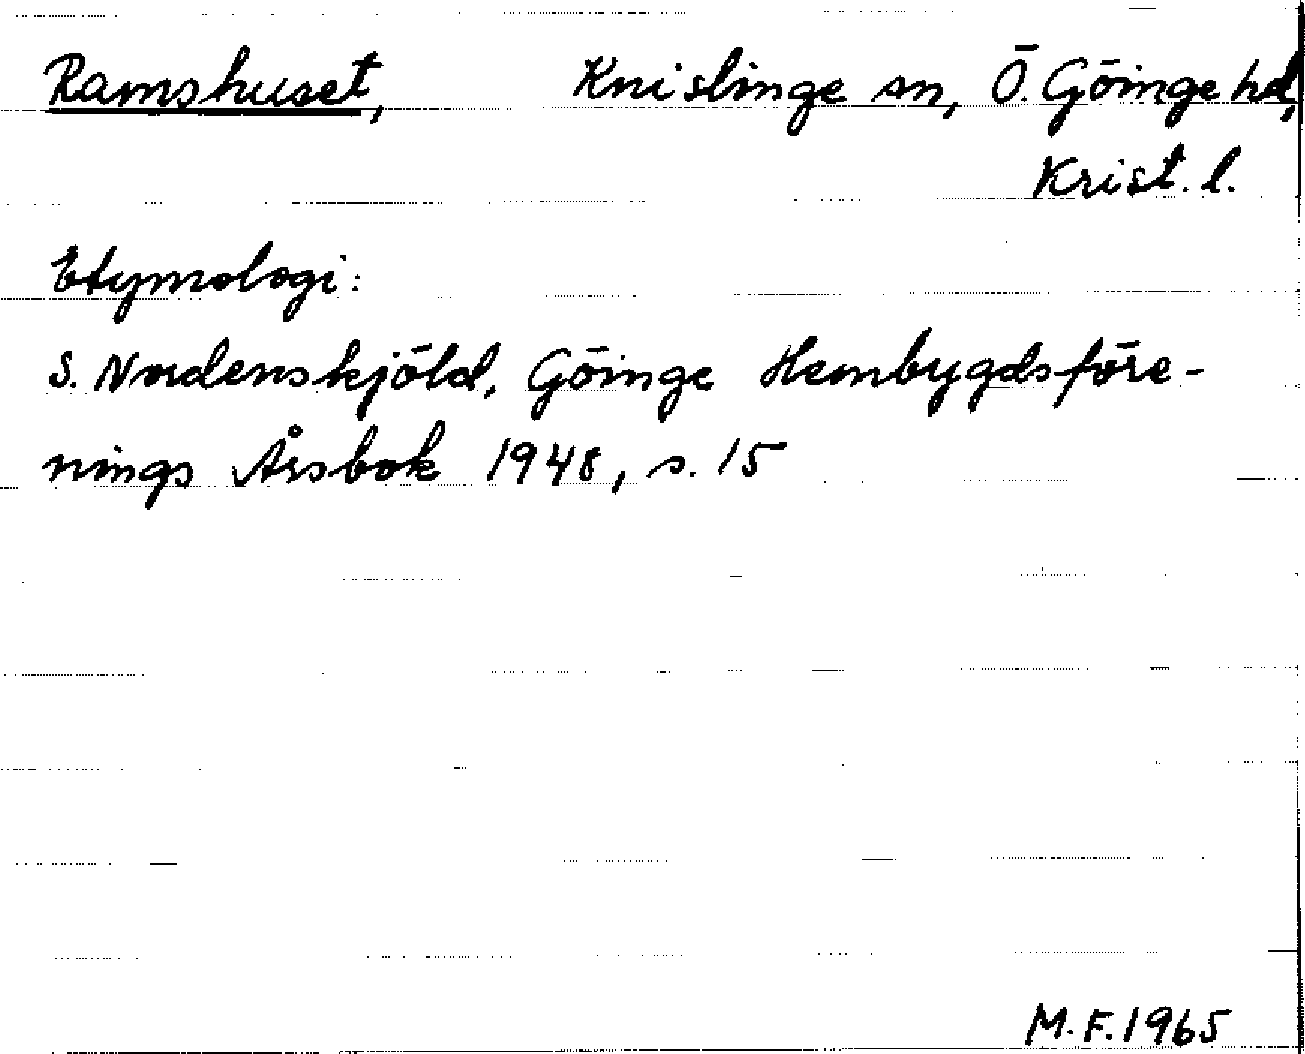 Ramshuset, Knislinge sn, Ö. Göinge hd,
Krist. l.
Etymologi:
S. Nordenskjöld, Göinge Hembygdsföre-
nings Årsbok 1948, s. 15
M. F. 1965